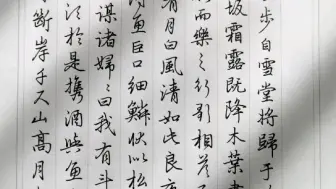 步自雪堂將歸于
坂霜露既降木葉盡
而樂之行歌相荅
有月白風清如此良夜
魚巨口細鱗狀似松
謀諸婦〻曰我有斗
於是攜酒與魚
断岸千尺山高月